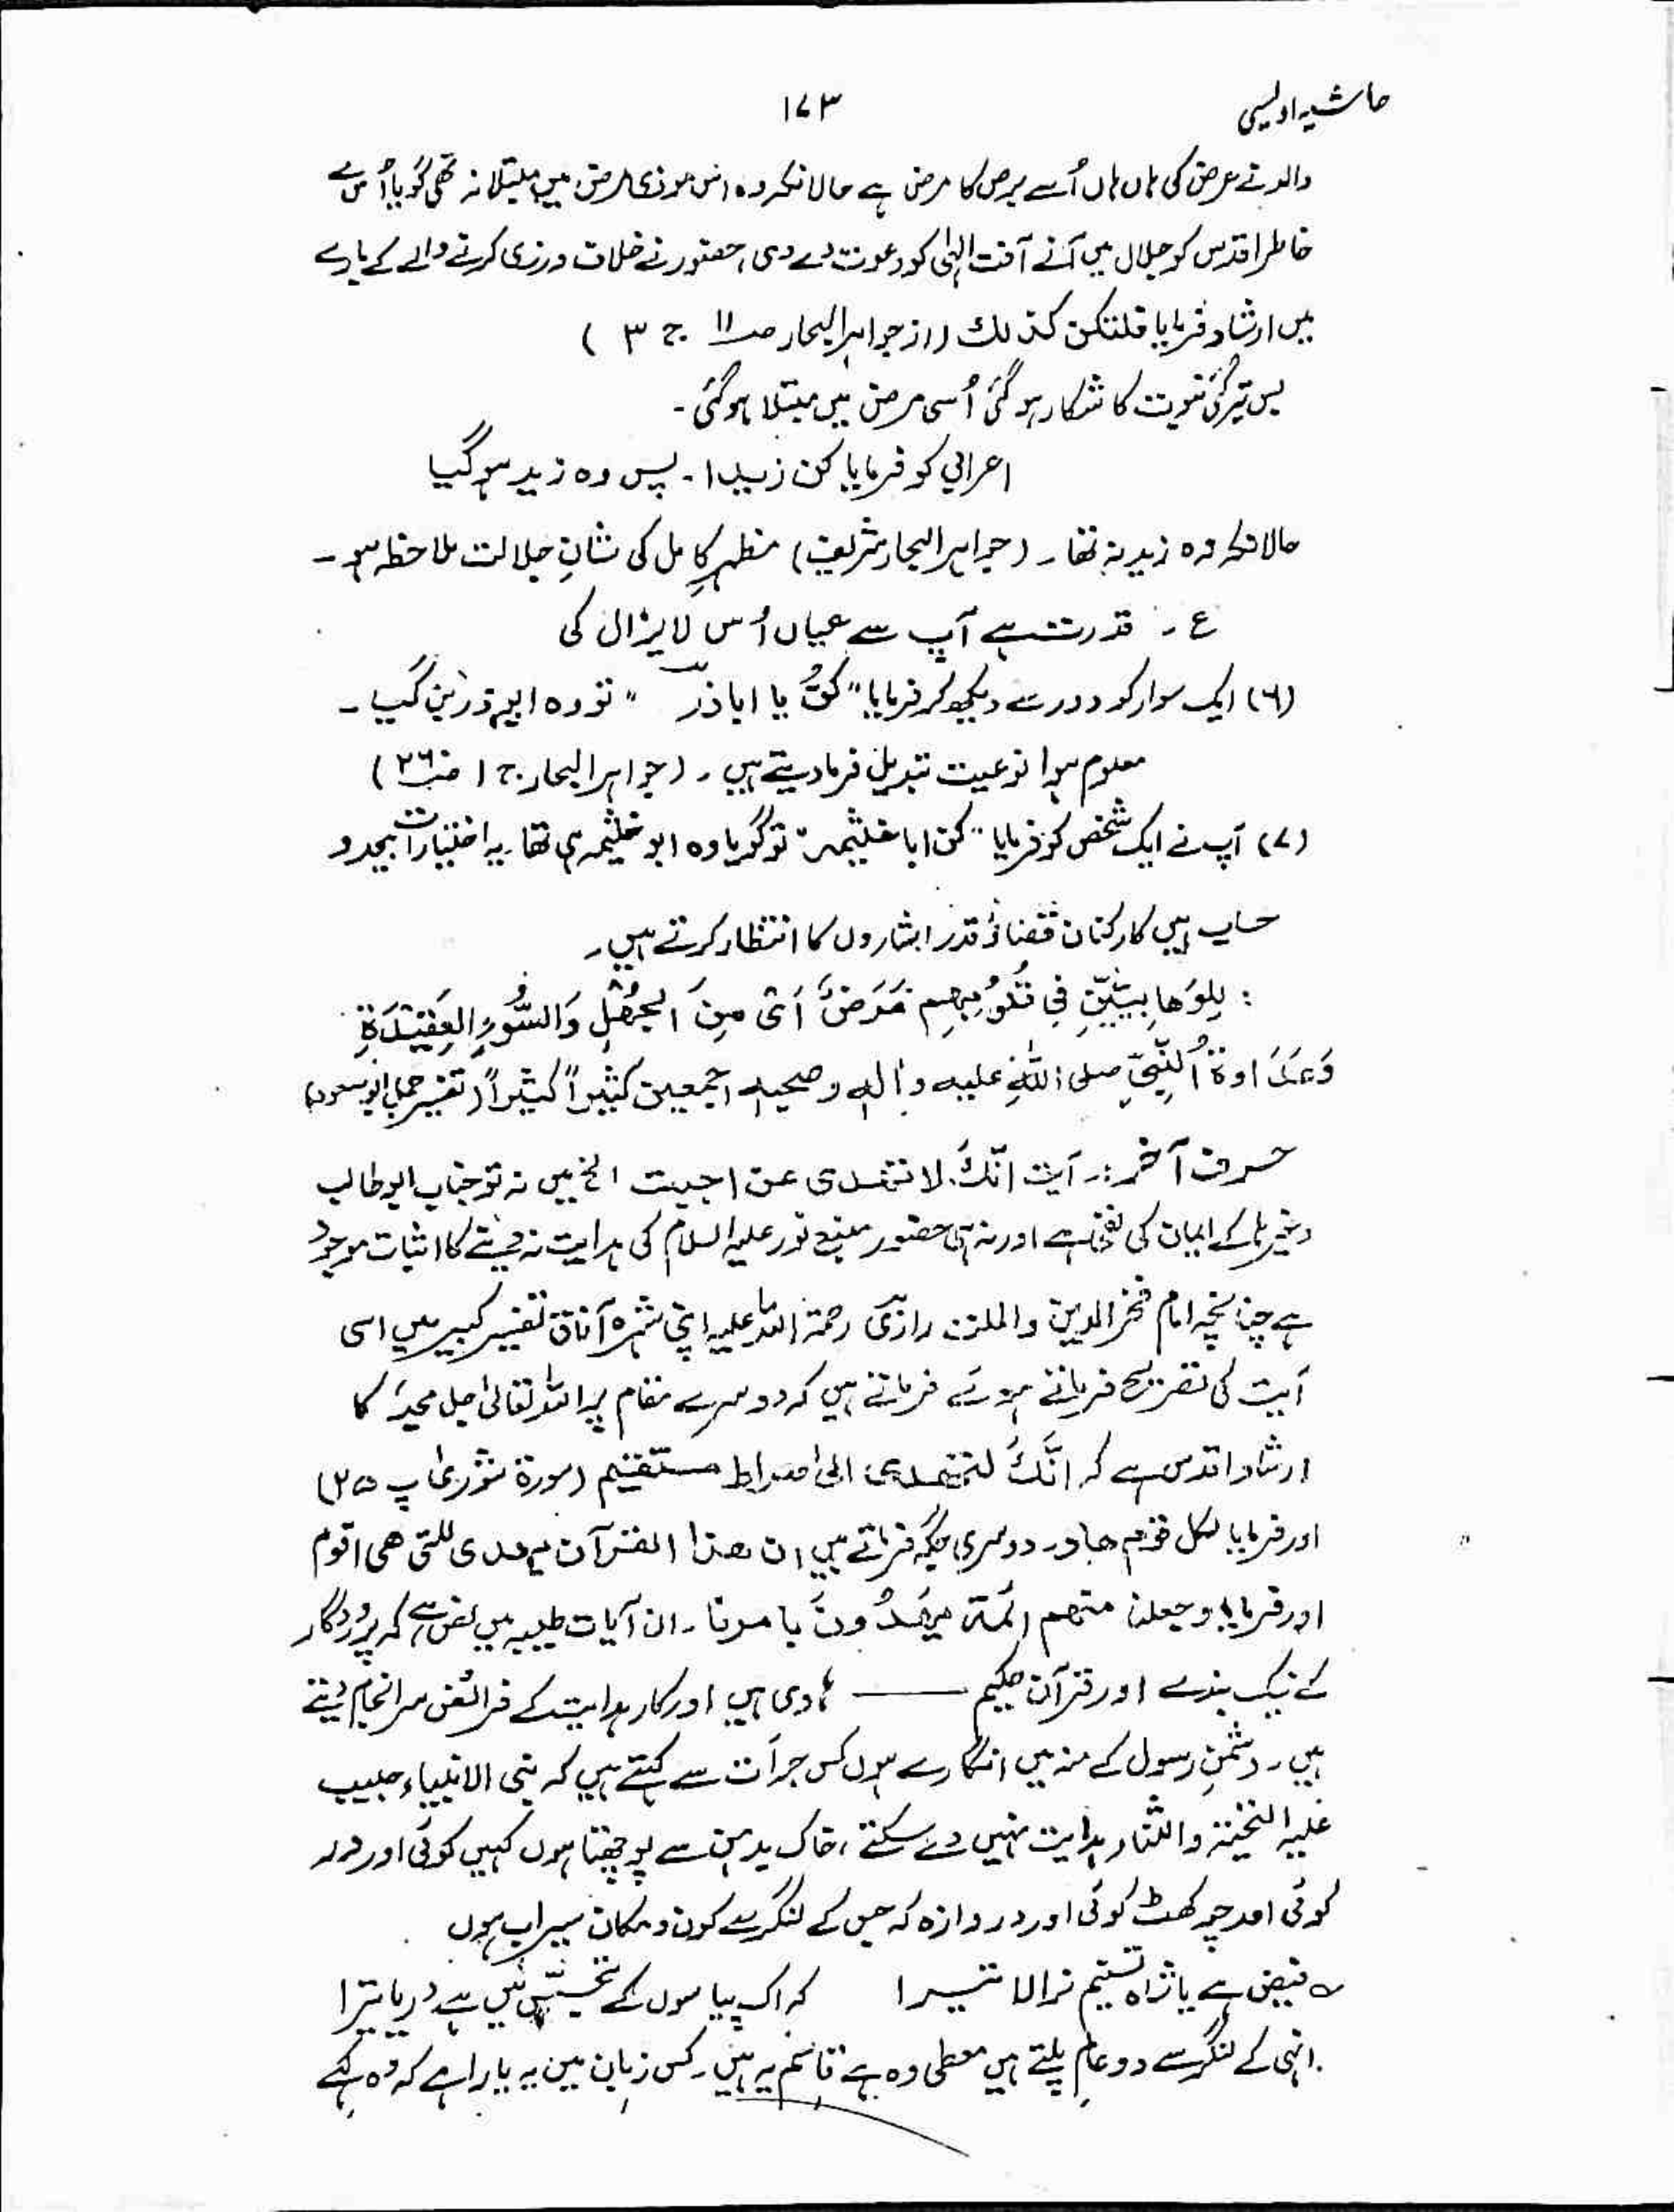 حاشیہ اویسی
۱۷۳
والد نے عرض کی ہاں ہاں اُسے برص کا مرض ہے حالانکہ وہ اس موذی مرض میں مبتلا نہ تھی گویا اُس نے
خاطر اقدس کو جلال میں آنے آفت الہٰی کو دعوت دے دی، حضور نے خلاف ورزی کرنے والے کے بارے
میں ارشاد فرمایا فلتکن کذلك (از جواہر البحار صـ۱۱ ج ۳ )
پس تیرگئ نبوت کا شکار ہو گئی اُسی مرض میں مبتلا ہو گئی۔
اعرابی کو فرمایا کن زیدا۔ پس وہ زید ہو گیا
حالانکہ وہ زید نہ تھا۔ (جواہر البحار شریف) مظہر کامل کی شانِ جلالت ملاحظہ ہو۔
ع۔ قدرت ہے آپ سے عیاں اُس لایزال کی
(۶) ایک سوار کو دور سے دیکھ کر فرمایا "کُن یا اباذر" تو وہ ابوذر بن گیا۔
معلوم ہوا نوعیت تبدیل فرما دیتے ہیں۔ (جواہر البحار ج ۱ صـ۲۶)
(۷) آپ نے ایک شخص کو فرمایا "کن ابا خیثمہ" تو گویا وہ ابو خیثمہ ہی تھا۔ یہ اختیارات بیحد و
حساب ہیں کارکنان قضا و قدر اشاروں کا انتظار کرتے ہیں۔
: لِلوَهابِيِّينَ فِي قُلُوبِهِم مَرَضٌ اَیْ مِنَ الجَهْلِ وَالسُّوءِ العَقِيْدَةِ
وَعَدَاوةُ النَّبِيّ صلى اللّٰهِ عليه واٰله وصحبه اجمعين كثيراً كثيراً (تفسیر جمل ابوسعود)
حرف آخر:۔ آیت انّكَ لا تهدی عن احببت الخ میں نہ تو جناب ابوطالب
وغیرہا کے ایمان کی نفی ہے اور نہ ہی حضور منبع نور علیہ السلام کی ہدایت نہ دینے کا اثبات موجود
ہے چنانچہ امام فخر الدین والملت رازی رحمۃ اللہ علیہ اپنی شہرہ آفاق تفسیر کبیر میں اسی
آیت کی تصریح فرماتے ہوئے فرماتے ہیں کہ دوسرے مقام پر اللہ تعالیٰ جل مجدہ کا
ارشاد اقدس ہے کہ انَّكَ لتهدی الی صراط مستقیم (سورۃ شوریٰ پ ۲۵)
اور فرمایا لکل قوم هاد۔ دوسری جگہ فرماتے ہیں ان هذا القرآن یهدی للتی هی اقوم
اور فرمایا وجعلنا منهم ائمۃ یهدُونَ بامرنا۔ ان آیات طیبہ میں نص ہے کہ پروردگار
کے نیک بندے اور قرآن حکیم ——— ہادی ہیں اور کار ہدایت کے فرائض سرانجام دیتے
ہیں۔ دشمنِ رسول کے منہ میں انگارے ہوں کس جرأت سے کہتے ہیں کہ نبی الانبیاء حبیب
علیہ التحیۃ والثناء ہدایت نہیں دے سکتے، خاک بدہن سے پوچھتا ہوں کہیں کوئی اور در
کوئی اور چوکھٹ کوئی اور دروازہ کہ جس کے لنگر سے کون و مکان سیراب ہوں
؎ فیض ہے یا شاہ تسنیم نرالا تیرا کہ اک پیاسوں کے تجسس میں ہے دریا تیرا
انہی کے لنگر سے دو عالم پلتے ہیں معطی وہ ہے قاسم یہ ہیں۔ کس زبان میں یہ یارا ہے کہ وہ کہے